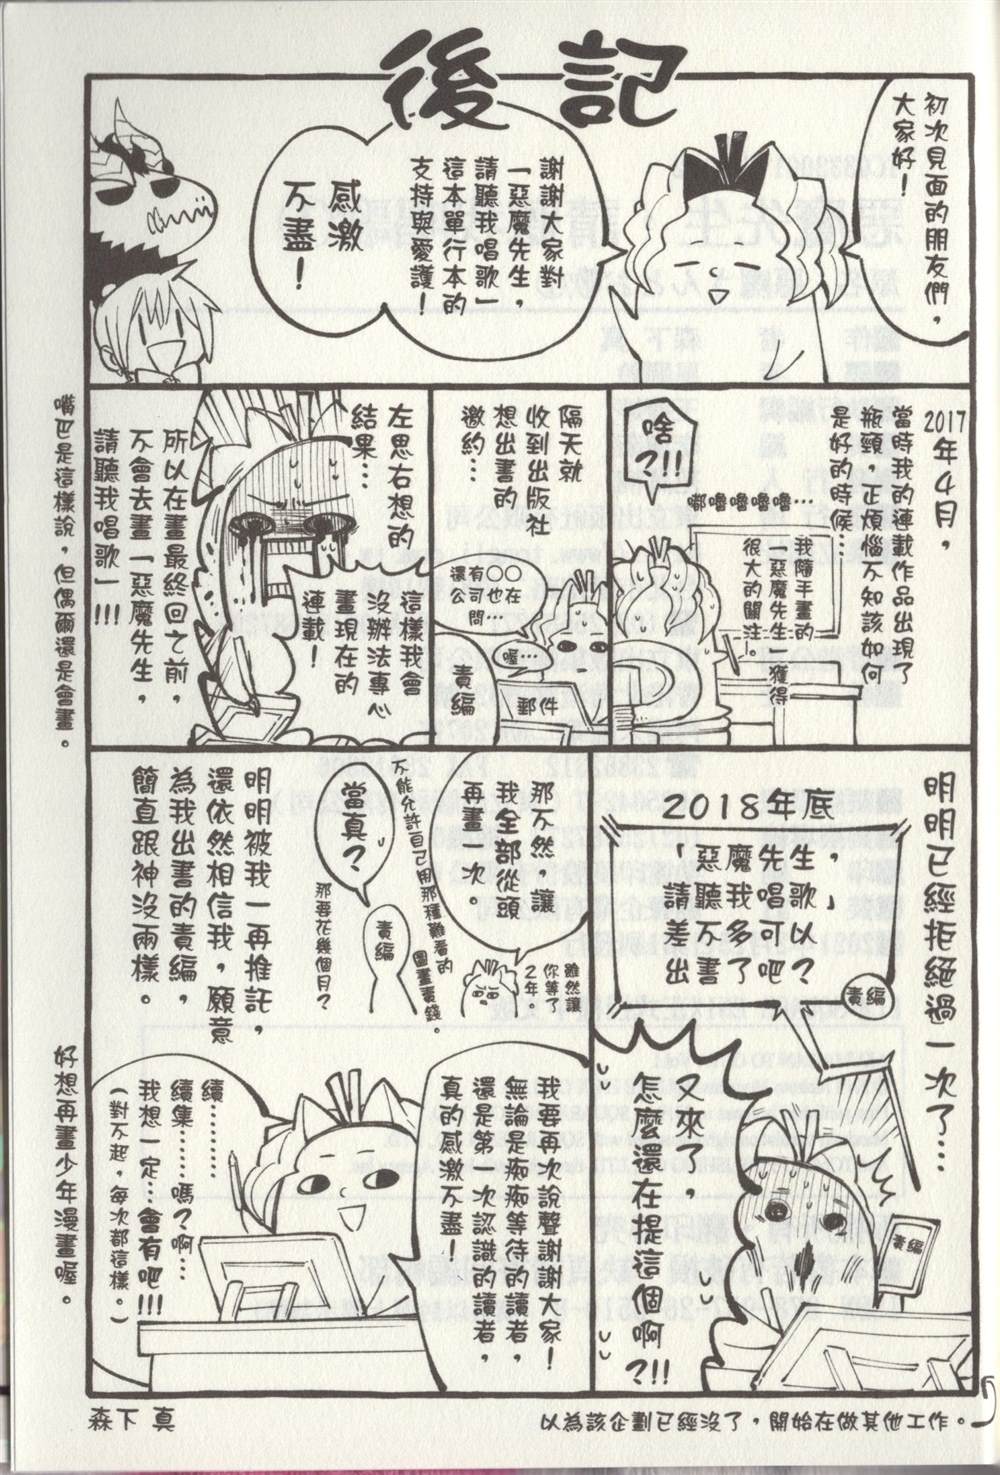 後記
初次見面的朋友們，
大家好！
謝謝大家對
「惡魔先生，
請聽我唱歌」
這本單行本的
支持與愛護！
感激
不盡！
2017年4月，
當時我的連載作品出現了
瓶頸，正煩惱不知該如何
是好的時候…
嘟嚕嚕嚕嚕…
我隨手畫的
「惡魔先生」獲得
很大的關注。
啥
?!!
隔天就
收到出版社
想出書的
邀約…
還有○○
公司也在
問…
喔…
責編
郵件
左思右想的
結果…
這樣我會
沒辦法專心
畫現在的
連載！
所以在畫最終回之前，
不會去畫「惡魔先生，
請聽我唱歌」!!!
嘴巴是這樣說，但偶爾還是會畫。
明明已經拒絕過一次了…
2018年底
「惡魔先生，
請聽我唱歌」
差不多可以
出書了吧？
責編
又來了，
怎麼還在提這個啊?!!
責編
以為該企劃已經沒了，開始在做其他工作。
那不然，讓
我全部從頭
再畫一次。
雖然讓
你等了
2年。
不能允許自己用那種難看的
圖畫賣錢。
當真？
責編
那要花幾個月？
明明被我一再推託，
還依然相信我，願意
為我出書的責編，
簡直跟神沒兩樣。
我要再次說聲謝謝大家！
無論是痴痴等待的讀者，
還是第一次認識的讀者，
真的感激不盡！
續………
續集………嗎？啊…
我想一定…會有吧!!!
（對不起，每次都這樣。）
好想再畫少年漫畫喔。
森下 真